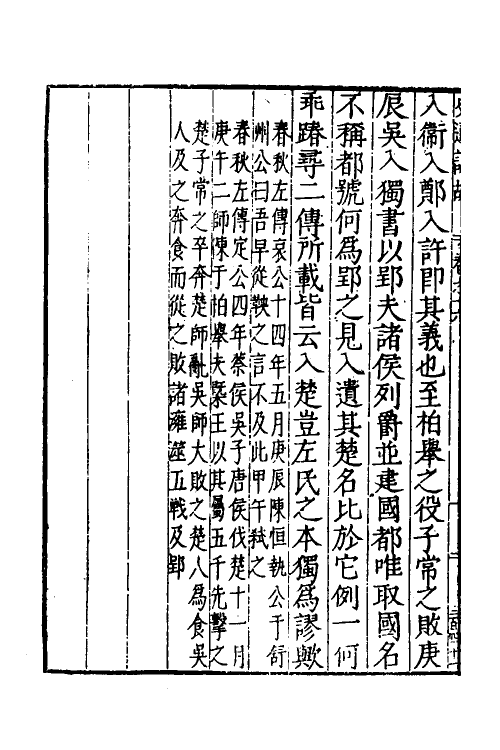 入衞入鄭入許卽其義也至柏舉之役子常之敗庚
辰吳入獨書以郢夫諸侯列爵並建國都唯取國名
不稱都號何爲郢之見入遺其楚名比於它例一何
乖踳尋二傳所載皆云入楚豈左氏之本獨爲謬歟
春秋左傳哀公十四年五月庚辰陳恒執公于舒
州公曰吾早從鞅之言不及此甲午弒之
春秋左傳定公四年蔡侯吳子唐侯伐楚十一月
庚午二師陳于柏舉夫槩王以其屬五千先擊之
楚子常之卒奔楚師亂吳師大敗之楚人爲食吳
人及之奔食而從之敗諸雍澨五戰及郢